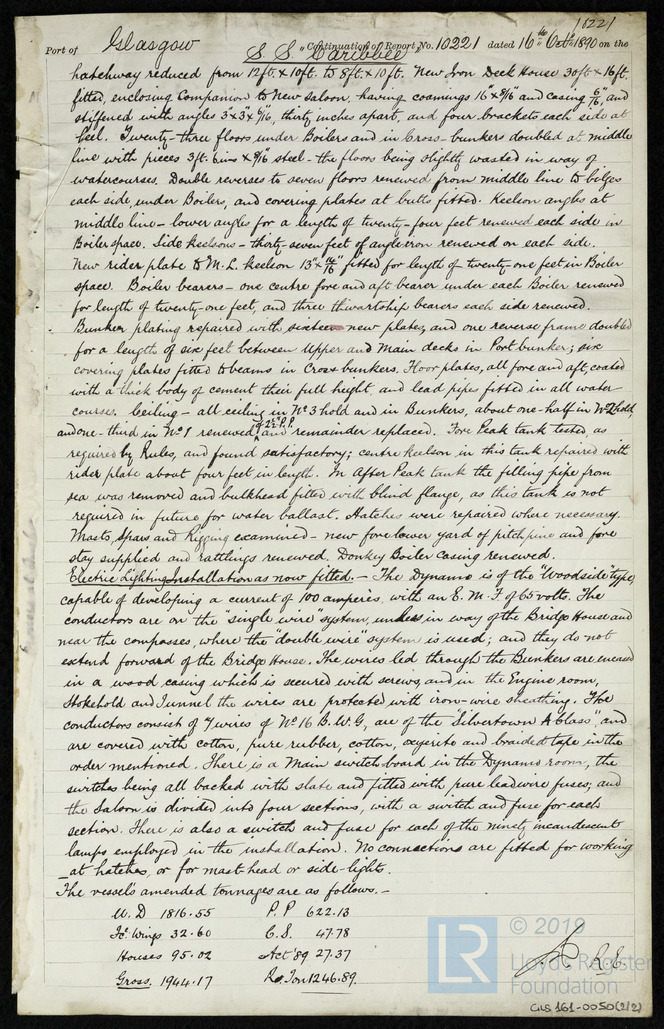 10221
Port of Glasgow Continuation of Report No. 10221 dated 16th Octr. 1890 on the
S.S. "Caribbee"
hatchway reduced from 12ft. x 10ft. to 8ft. x 10ft. New Iron Deck House 30ft x 16ft.
fitted, enclosing Companion to New Saloon, having coamings 16" x 8/16" and casing 6/16", and
stiffened with angles 3" x 3" x 7/16", thirty inches apart, and four brackets each side at
heel. Twenty-three floors under Boilers and in Cross-bunkers doubled at middle
line with pieces 3ft. 6ins x 9/16 steel - the floors being slightly wasted in way of
watercourses. Double reverses to seven floors renewed from middle line to bilges
each side, under Boilers, and covering plates at butts fitted. Keelson angles at
middle line - lower angles for a length of twenty-four feet renewed each side in
Boiler space. Side keelsons - thirty-seven feet of angle iron renewed on each side.
New rider plate to M.L. keelson 13" x 14/16" fitted for length of twenty-one feet in Boiler
space. Boiler bearers - one centre fore and aft bearer under each Boiler renewed
for length of twenty-one feet, and three thwartship bearers each side renewed.
Bunker plating repaired with sixteen new plates, and one reverse frame doubled
for a length of six feet between Upper and Main decks in Port bunker; six
covering plates fitted to beams in Cross bunkers. Floor plates, all fore and aft, coated
with a thick body of cement their full height, and lead pipe fitted in all water-
courses. Ceiling - all ceiling in No 3 hold and in Bunkers, about one-half in No 2 hold,
and one-third in No 1 renewed, 2½" P.P. and remainder replaced. Fore Peak tank tested as
required by Rules, and found satisfactory; centre keelson in this tank repaired with
rider plate about four feet in length. In After Peak tank the filling pipe from
sea was removed and bulkhead fitted with blind flange, as this tank is not
required in future for water ballast. Hatches were repaired where necessary.
Masts, Spars and Rigging examined - new fore lower yard of pitch pine and fore
stay supplied and rattlings renewed. Donkey Boiler casing renewed.
Electric Lighting Installation as now fitted. - The Dynamo is of the "Woodside" type,
capable of developing a current of 100 ampères, with an E.M.F of 65 volts. The
conductors are on the "single wire" system, unless in way of the Bridge House and
near the compasses, where the "double wire" system is used; and they do not
extend forward of the Bridge House. The wires led through the Bunkers are encased
in a wood casing which is secured with screws, and in the Engine room,
Stokehold and Tunnel the wires are protected with iron-wire sheathing. The
conductors consist of 7 wires of No 16 B.W.G, are of the "Silvertown A Class", and
are covered with cotton, pure rubber, cotton, ozysite and braided tape in the
order mentioned. There is a Main switch-board in the Dynamo room, the
switches being all backed with slate and fitted with pure lead wire fuses; and
the Saloon is divided into four sections, with a switch and fuse for each
section. There is also a switch and fuse for each of the ninety incandescent
lamps employed in the installation. No connections are fitted for working
at hatches, or for mast head or side-lights.
The vessel's amended tonnages are as follows. -
U.D 1816.55 P.P 622.13
Fc. Wings 32.60 C.S. 47.78
Houses 95.02 Act '89 27.37
Gross. 1944.17 Rg. Ton 1246.89.
R.E.
LR © 2019
Lloyd's Register
Foundation
CLS 161-0050(2/2)